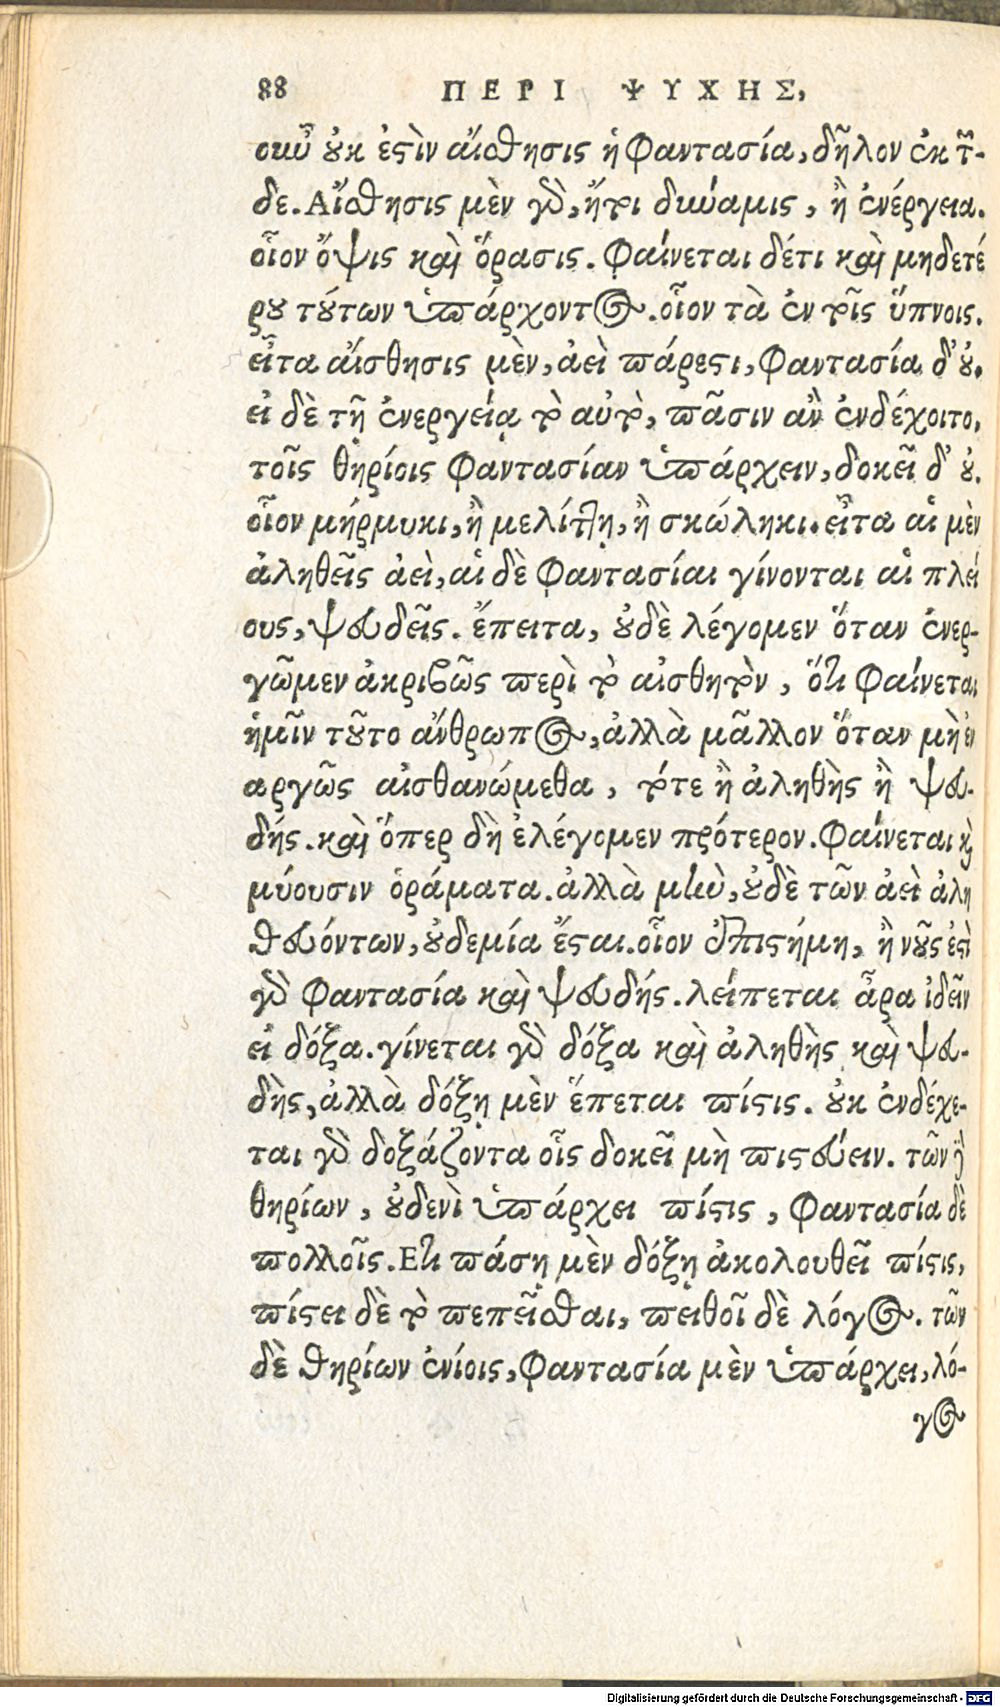 88 ΠΕΡΙ ΨΥΧΗΣ,
οὖν οὐκ ἐστὶν αἴσθησις ἡ φαντασία, δῆλον ἐκ τῶν-
δε. Αἴσθησις μὲν γὰρ, ἤτοι δύναμις, ἢ ἐνέργεια.
οἷον ὄψις καὶ ὅρασις. φαίνεται δέ τι καὶ μηδετέ
ρου τούτων ὑπάρχοντος. οἷον τὰ ἐν τοῖς ὕπνοις.
εἶτα αἴσθησις μὲν, ἀεὶ πάρεστι, φαντασία δ' οὔ.
εἰ δὲ τῇ ἐνεργείᾳ τὸ αὐτὸ, πᾶσιν ἂν ἐνδέχοιτο,
τοῖς θηρίοις φαντασίαν ὑπάρχειν, δοκεῖ δ' οὔ.
οἷον μύρμυκι, ἢ μελίττῃ, ἢ σκώληκι. εἶτα αἱ μὲν
ἀληθεῖς ἀεὶ, αἱ δὲ φαντασίαι γίνονται αἱ πλεί
ους, ψευδεῖς. ἔπειτα, οὐδὲ λέγομεν ὅταν ἐνερ-
γῶμεν ἀκριβῶς περὶ τὸ αἰσθητὸν, ὅτι φαίνεται
ἡμῖν τοῦτο ἄνθρωπος, ἀλλὰ μᾶλλον ὅταν μὴ ἐν
αργῶς αἰσθανώμεθα, τότε ἢ ἀληθὴς ἢ ψευ-
δής. καὶ ὅπερ δὴ ἐλέγομεν πρότερον. φαίνεται καὶ
μύουσιν ὁράματα. ἀλλὰ μὴν, οὐδὲ τῶν ἀεὶ ἀλη
θευόντων, οὐδεμία ἔσται. οἷον ἐπιστήμη, ἢ νοῦς ἐστὶ
γὰρ φαντασία καὶ ψευδής. λείπεται ἆρα ἰδεῖν
εἰ δόξα. γίνεται γὰρ δόξα καὶ ἀληθὴς καὶ ψευ-
δὴς, ἀλλὰ δόξῃ μὲν ἕπεται πίστις. οὐκ ἐνδέχε-
ται γὰρ δοξάζοντα οἷς δοκεῖ μὴ πιστεύειν. τῶν δὲ
θηρίων, οὐδενὶ ὑπάρχει πίστις, φαντασία δὲ
πολλοῖς. Ετι πάσῃ μὲν δόξῃ ἀκολουθεῖ πίστις,
πίστει δὲ τὸ πεπεῖσθαι, πειθοῖ δὲ λόγος. τῶν
δὲ θηρίων ἐνίοις, φαντασία μὲν ὑπάρχει, λό-
γος
Digitalisierung gefördert durch die Deutsche Forschungsgemeinschaft - DFG